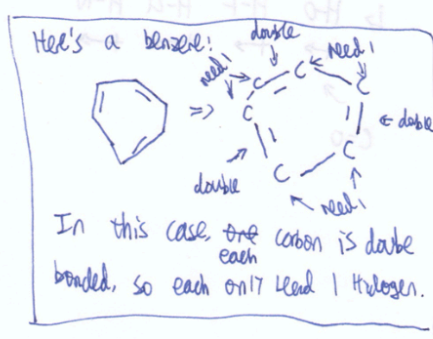 Here's a benzene:
double
need 1
need 1
C = C
C
C
double
double
C
C
need 1
In this case, each carbon is double
bonded, so each only need 1 Hydrogen.